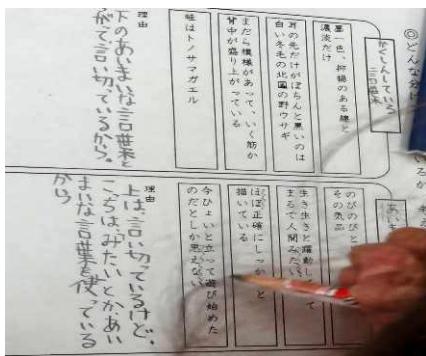 ◎どんな
かくしんしている
言葉
墨一色、抑揚のある線と
濃淡だけ
耳の先だけがぽちんと黒いのは
白い冬毛の北国の野ウサギ
まだら模様があって、いく筋か
背中が盛り上がっている
蛙はトノサマガエル
理由
下のあいまいな言葉と
がて言い切っているから。
のびのびと
その気品
生き生きと躍動し
まるで人間みたい
ほぼ正確にしっか
描いている
今ひょいと立って遊び始めた
のだとしか思えない
理由
上は、言い切っているけど、
こっちは、みたいとか、あい
まいな言葉を使っている
から